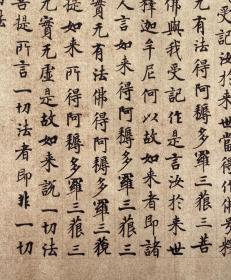 記汝於來世當得作佛号釋
无有法得阿耨多羅三藐三菩
佛與我受記作是言汝於来世
釋迦牟尼何以故如来者即諸
人言如来得阿耨多羅三藐三
實无有法佛得阿耨多羅三藐
提如来所得阿耨多羅三藐三
實无虛是故如来說一切法
菩提所言一切法者即非一切
法